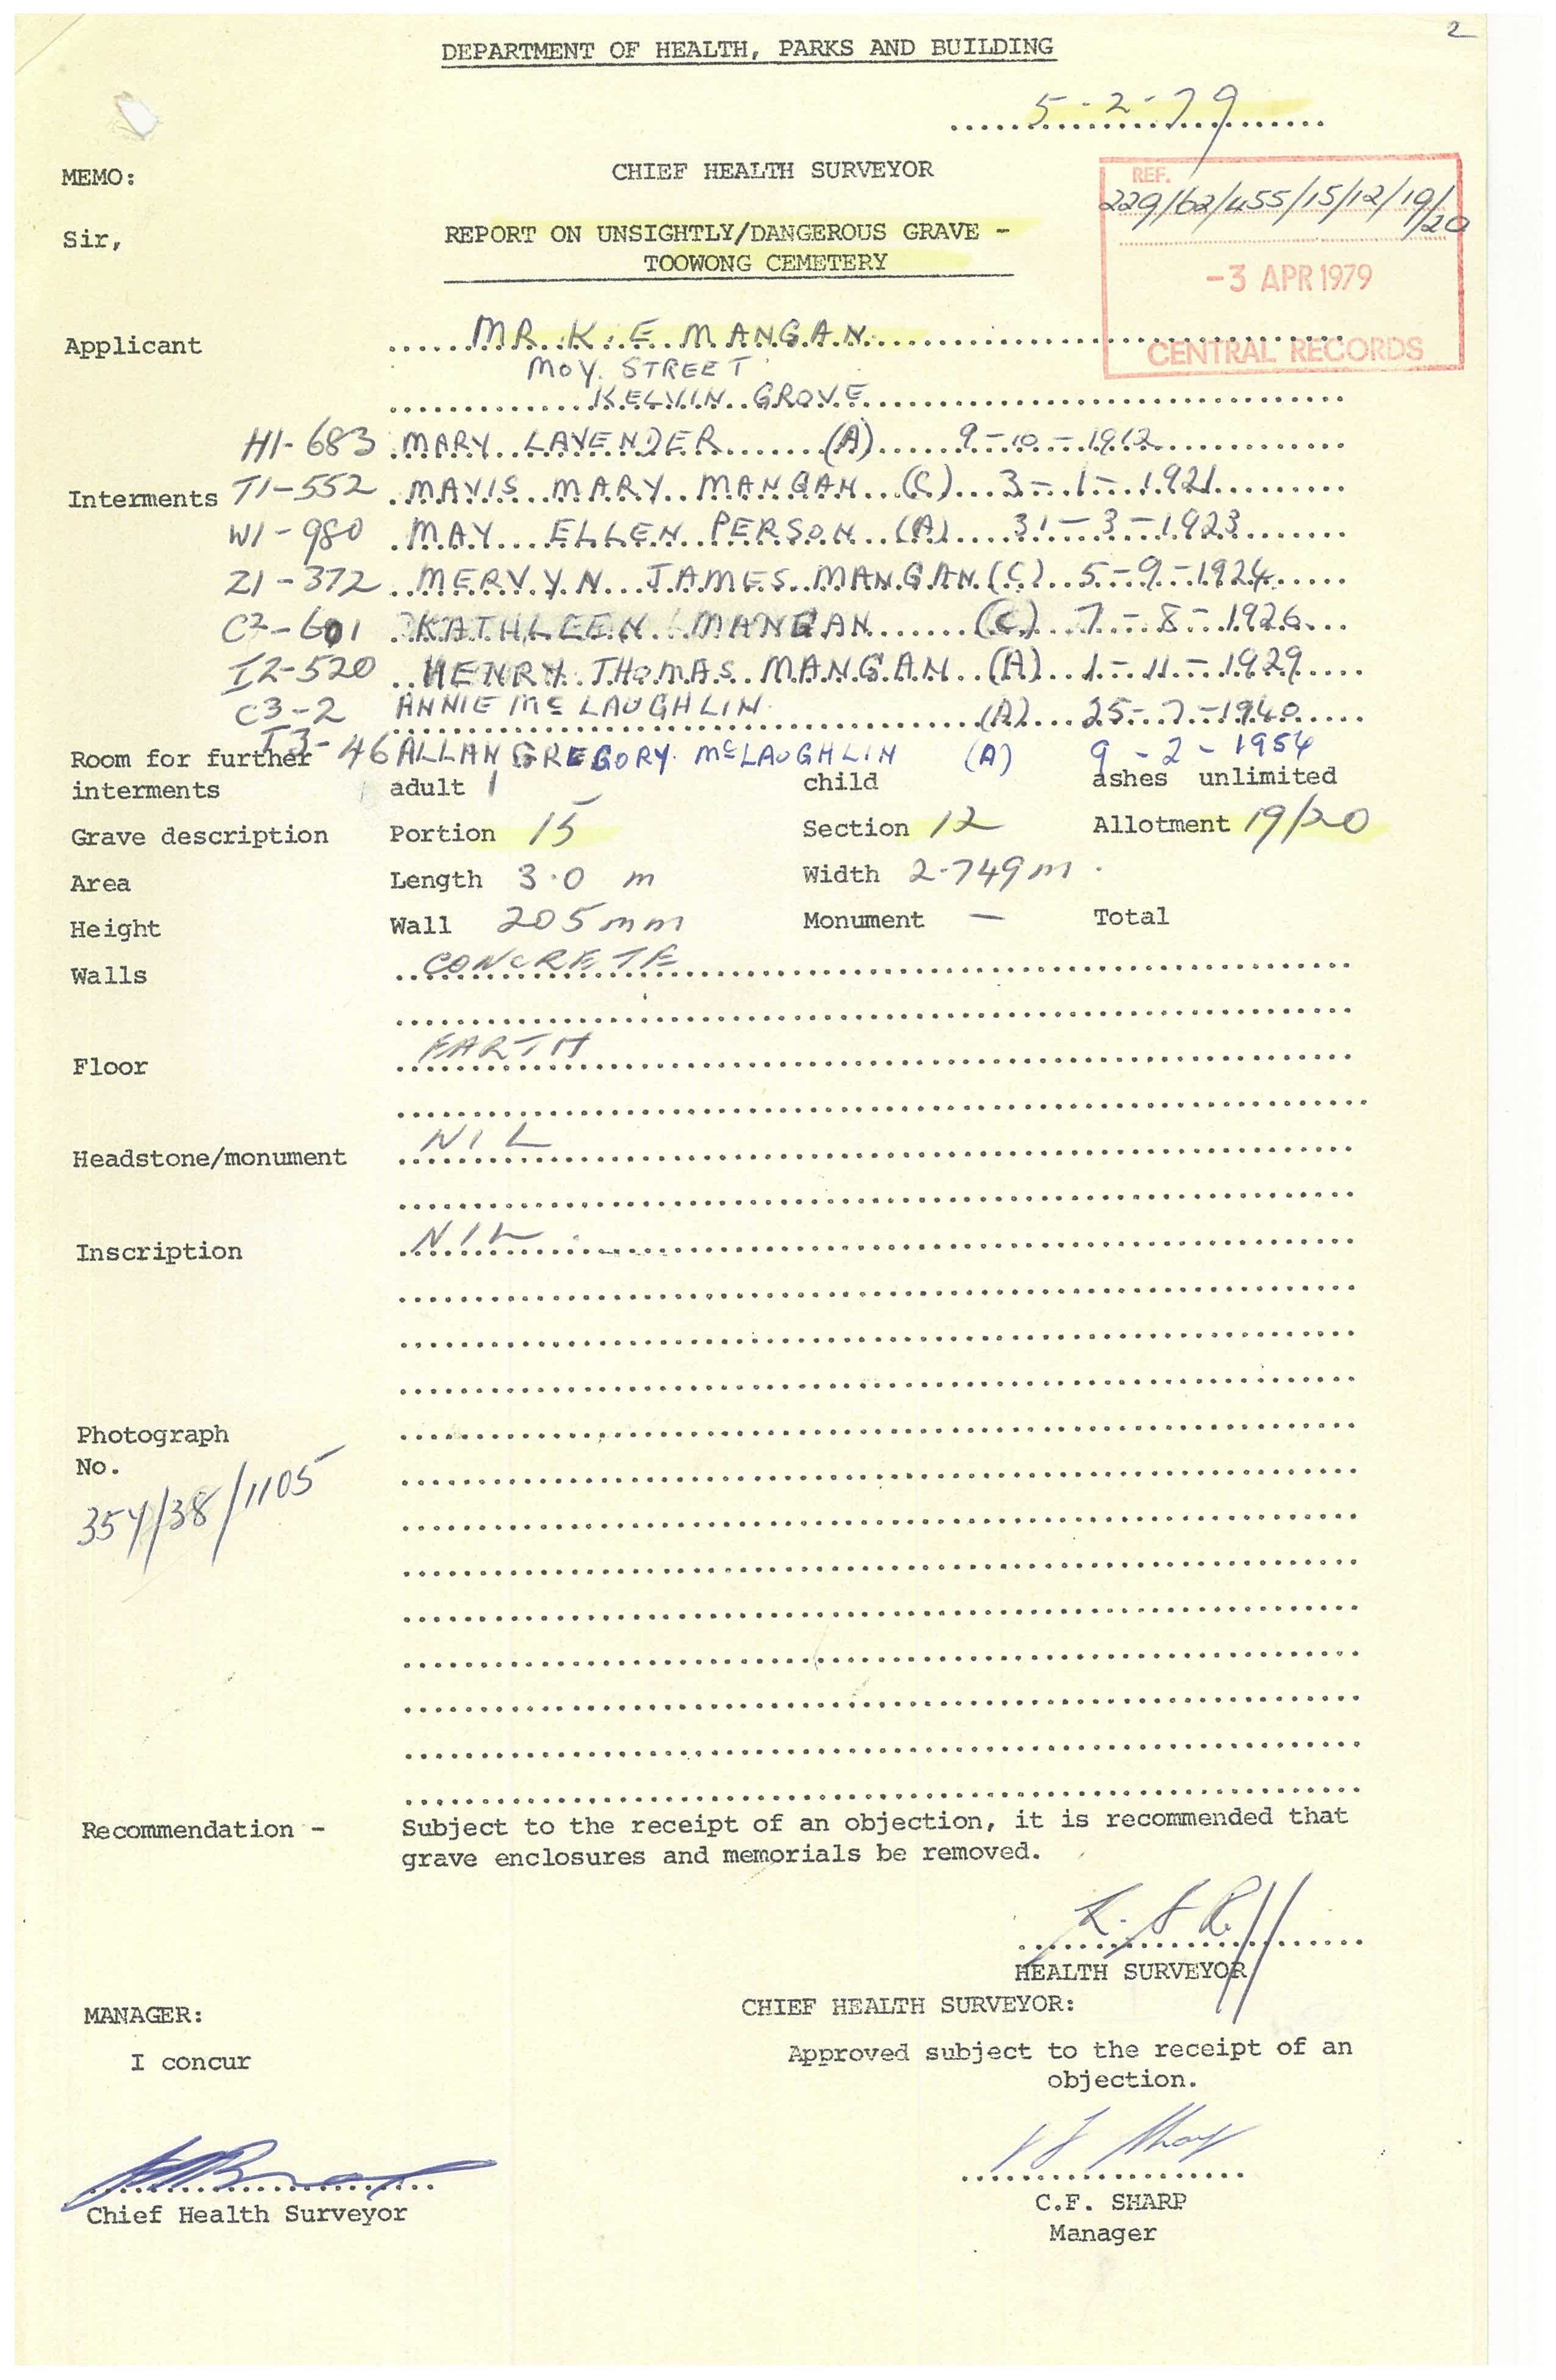 2
DEPARTMENT OF HEALTH, PARKS AND BUILDING
5-2-79
MEMO:
CHIEF HEALTH SURVEYOR
REF.
229/62/455/15/12/19/20
Sir,
REPORT ON UNSIGHTLY/DANGEROUS GRAVE -
TOOWONG CEMETERY
-3 APR 1979
CENTRAL RECORDS
Applicant MR. K. E. MANGAN.
MOY. STREET
KELVIN GROVE
H1-683 MARY LAVENDER (A) 9-10-1912
Interments T1-552 MAVIS MARY MANGAN (C) 3-1-1921
W1-980 MAY ELLEN PERSON (A) 31-3-1923
Z1-372 MERVYN JAMES MANGAN (C) 5-9-1924
C2-601 KATHLEEN MANGAN (C) 7-8-1926
I2-520 HENRY THOMAS MANGAN (A) 1-11-1929
C3-2 ANNIE McLAUGHLIN (A) 25-7-1940
Room for further I3-46 ALLAN GREGORY McLAUGHLIN (A) 9-2-1954
interments adult 1 child ashes unlimited
Grave description Portion 15 Section 12 Allotment 19/20
Area Length 3.0 m Width 2.749m.
Height Wall 205mm Monument — Total
Walls CONCRETE
Floor EARTH
Headstone/monument NIL
Inscription NIL
Photograph
No.
354/38/1105
Recommendation - Subject to the receipt of an objection, it is recommended that
grave enclosures and memorials be removed.
HEALTH SURVEYOR
MANAGER:
CHIEF HEALTH SURVEYOR:
I concur
Approved subject to the receipt of an
objection.
Chief Health Surveyor
C.F. SHARP
Manager